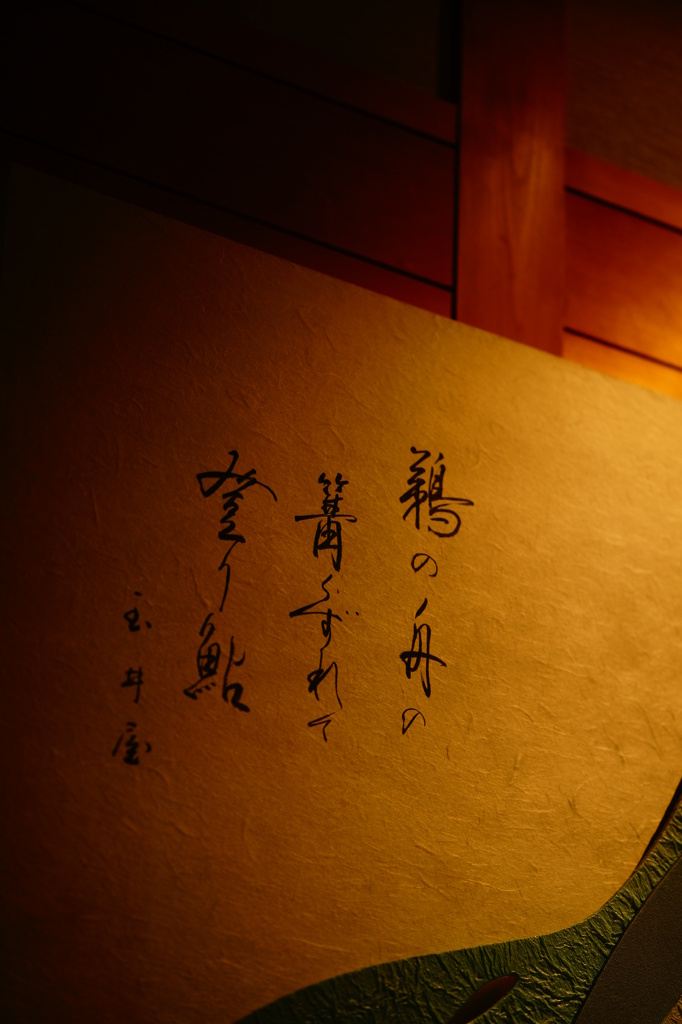 鵜の舟の
篝くずれて
登り鮎
玉井屋